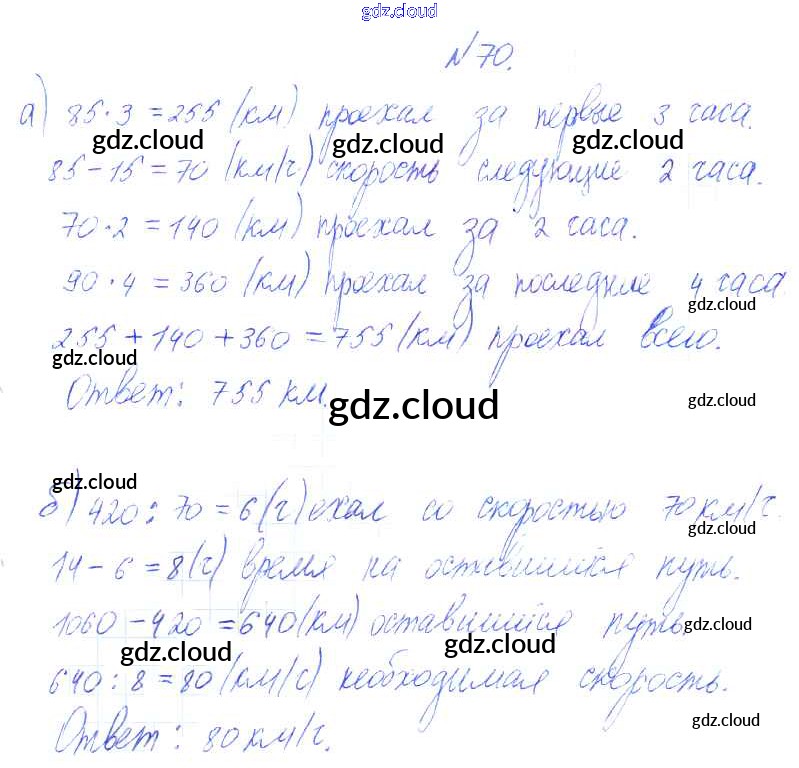 gdz.cloud
№70.
а) 85·3 = 255 (км) проехал за первые 3 часа.
gdz.cloud gdz.cloud gdz.cloud
85 – 15 = 70 (км/ч) скорость следующие 2 часа.
70·2 = 140 (км) проехал за 2 часа.
90·4 = 360 (км) проехал за последние 4 часа.
gdz.cloud
255 + 140 + 360 = 755 (км) проехал всего.
gdz.cloud
Ответ: 755 км.
gdz.cloud gdz.cloud
gdz.cloud gdz.cloud
б) 420 : 70 = 6 (ч) ехал со скоростью 70 км/ч.
gdz.cloud
14 – 6 = 8 (ч) время на оставшийся путь.
1060 – 420 = 640 (км) оставшийся путь.
gdz.cloud
gdz.cloud gdz.cloud
640 : 8 = 80 (км/с) необходимая скорость.
gdz.cloud
Ответ: 80 км/ч.